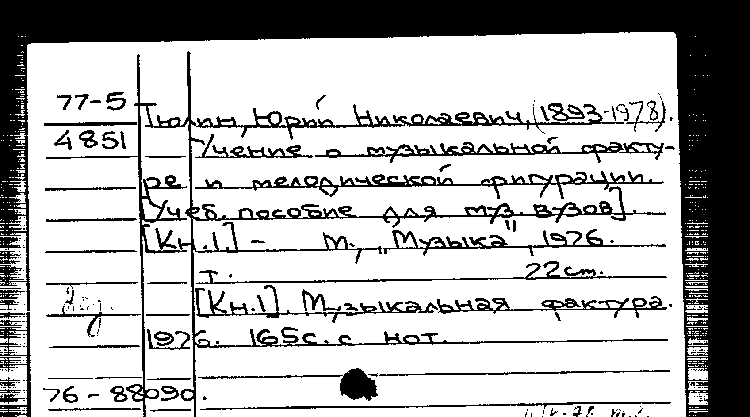 77-5 Тюлин, Юрий Николаевич, (1893-1978).
4851 Учение о музыкальной факту-
ре и мелодической фигурации.
[Учеб. пособие для муз. вузов].
[Кн.1.] - М., "Музыка", 1976.
т. 22 cm.
[Кн.1]. Музыкальная фактура.
1976. 165с. с нот.
76-88090.